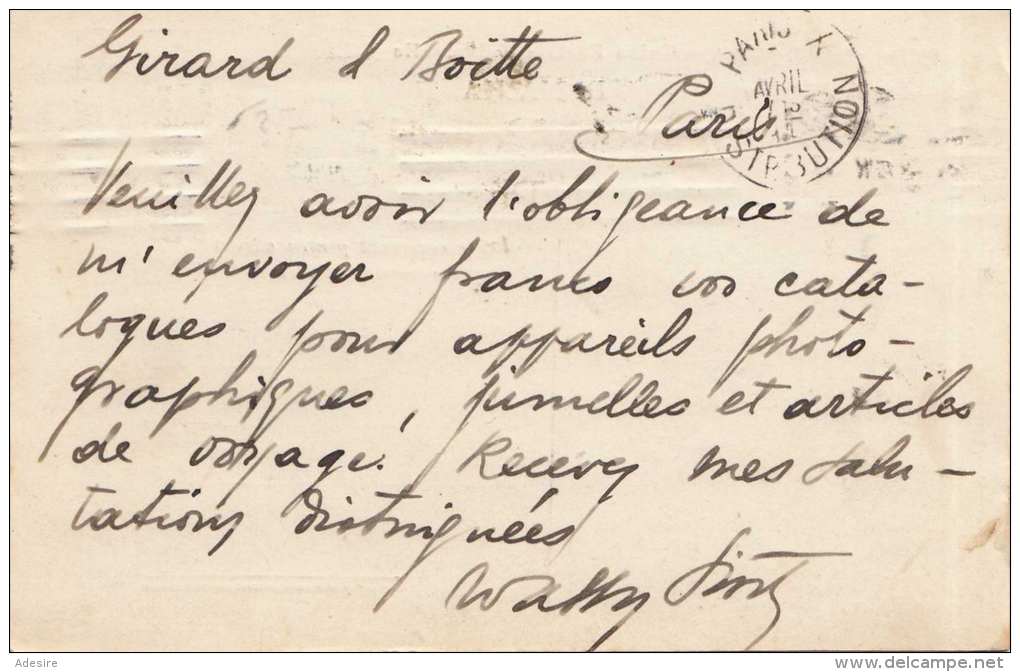 Girard & Boitte
PARIS X
AVRIL
DISTRIBUTION
Paris
Veuillez avoir l'obligeance de
m'envoyer franco vos cata-
logues pour appareils photo-
graphiques, jumelles et articles
de voyage. Recevez mes salu-
tations distinguées
Adesire
www.delcampe.net